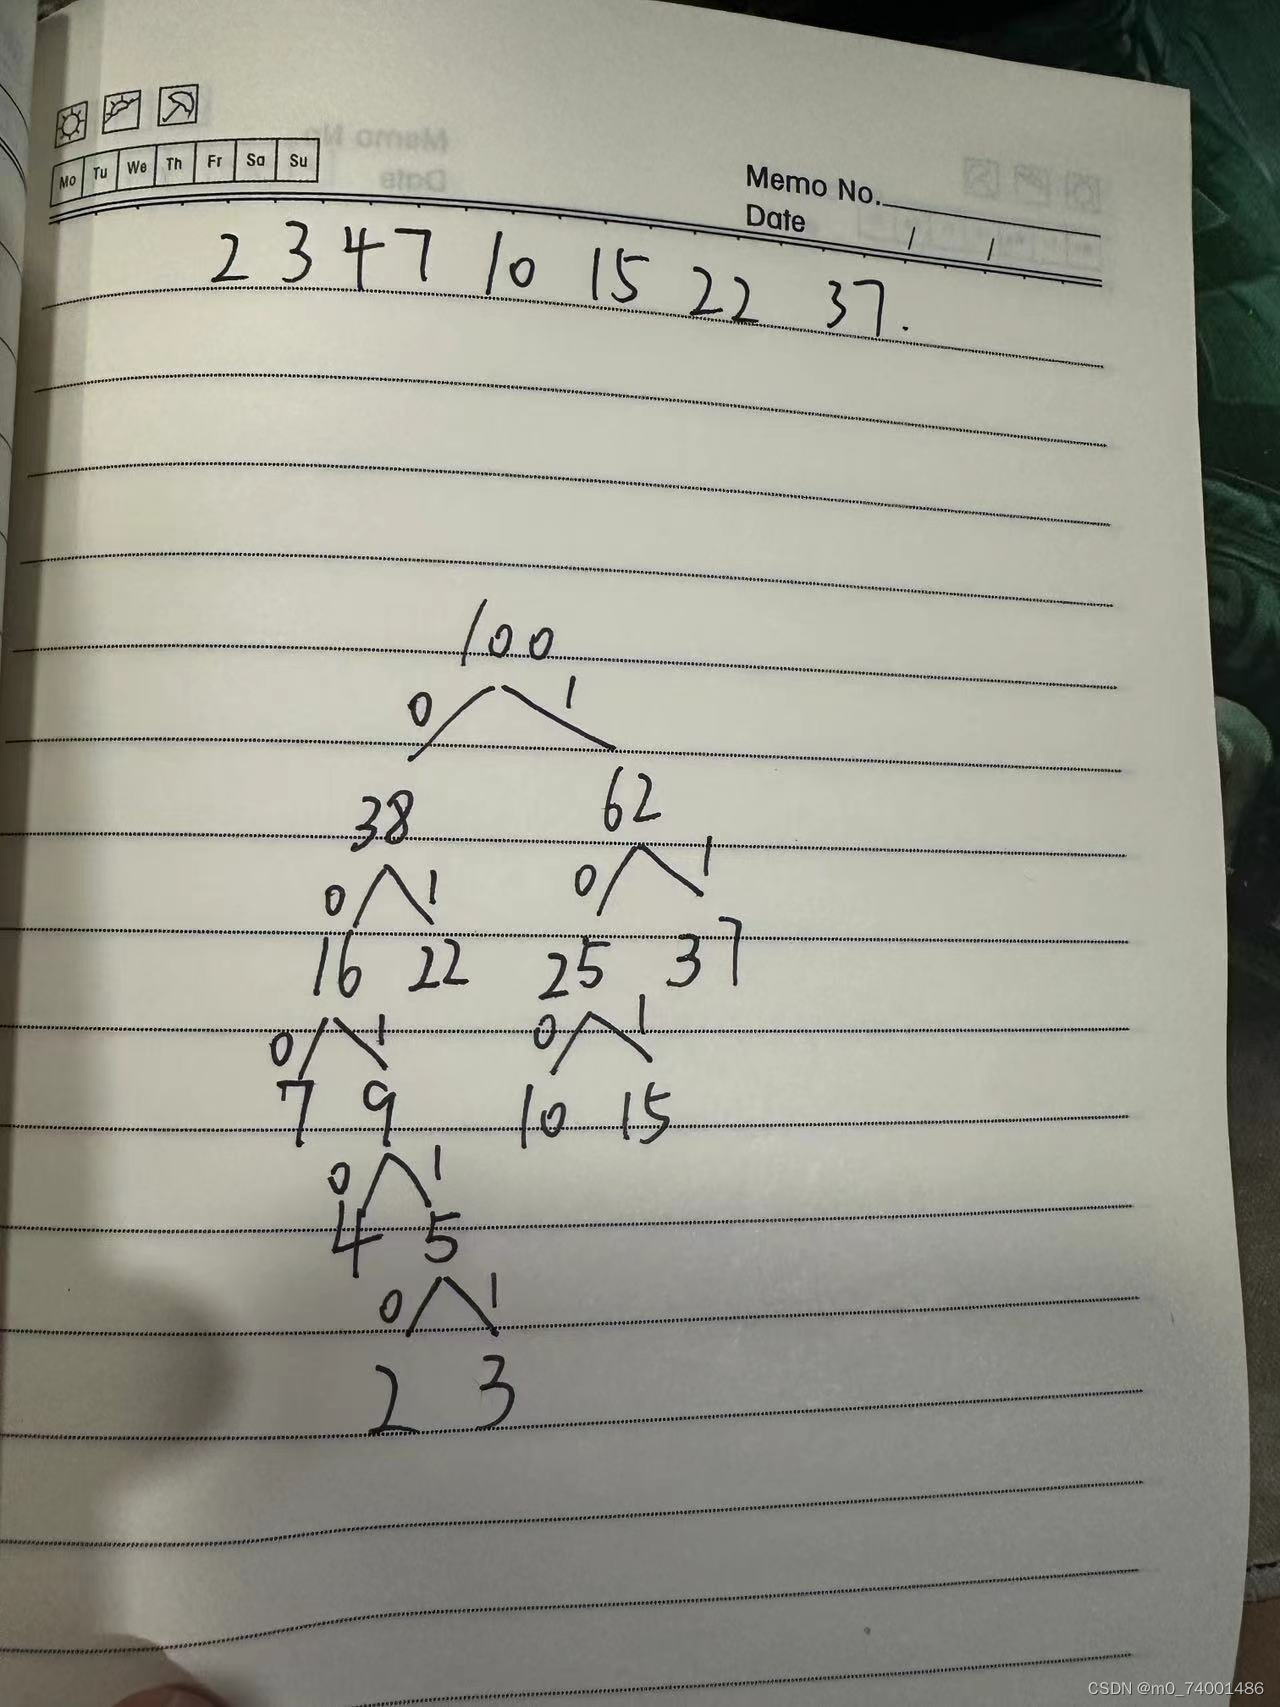 Mo Tu We Th Fr Sa Su
Memo No.
Date / /
2 3 4 7 10 15 22 37.
100
0 1
38 62
0 1 0 1
16 22 25 37
0 1 0 1
7 9 10 15
0 1
4 5
0 1
2 3
CSDN @m0_74001486